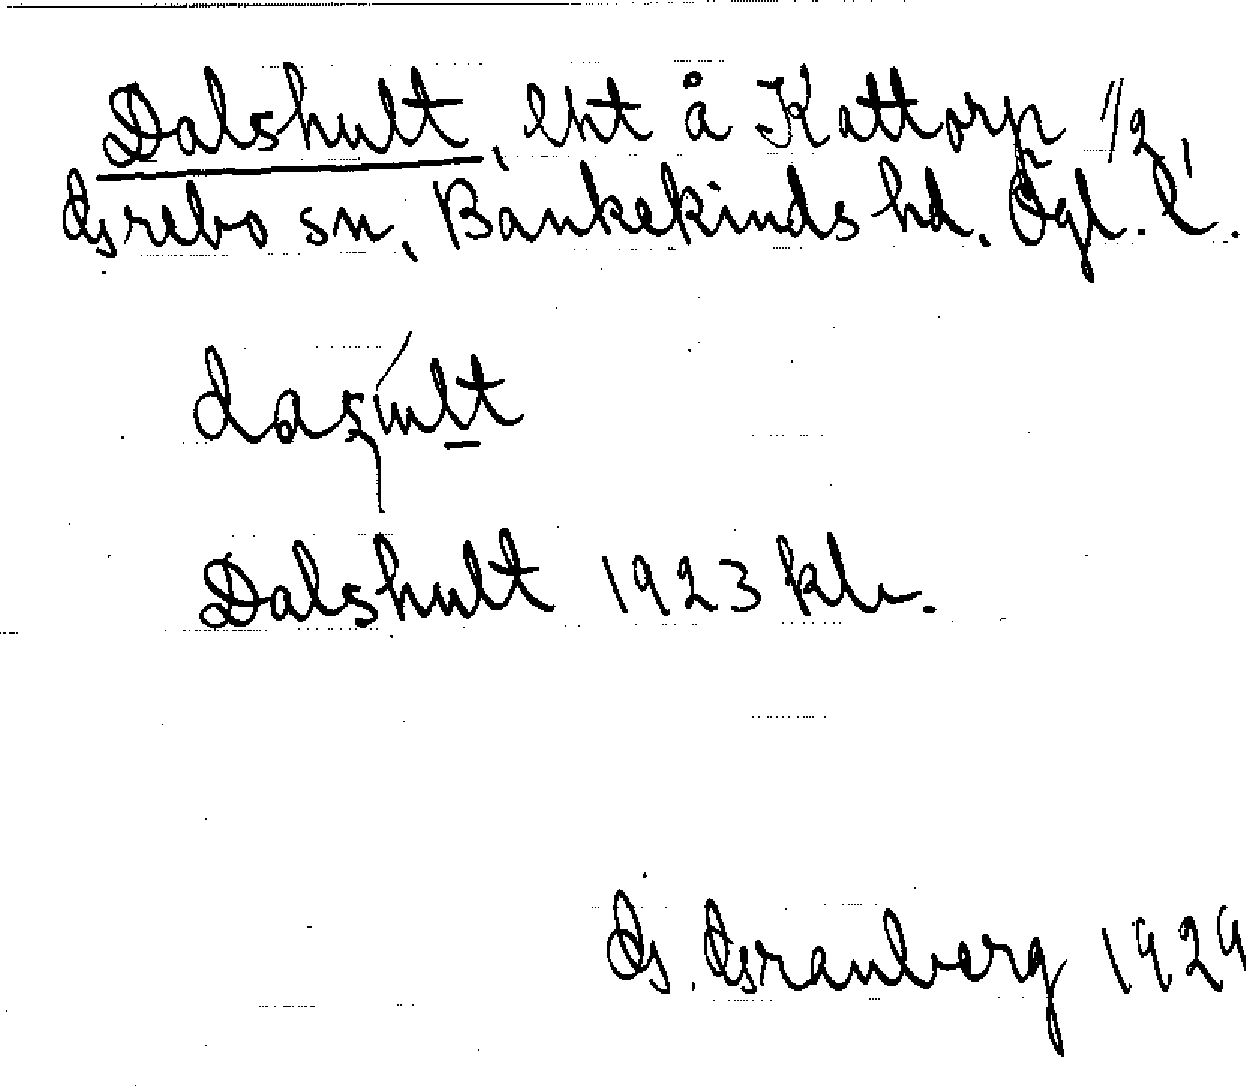 Dalshult, lht å Kattorp 1/2
Grebo sn, Bankekinds hd. Ögl. l.
Dalshult 1923 kh.
G. Granberg 1929